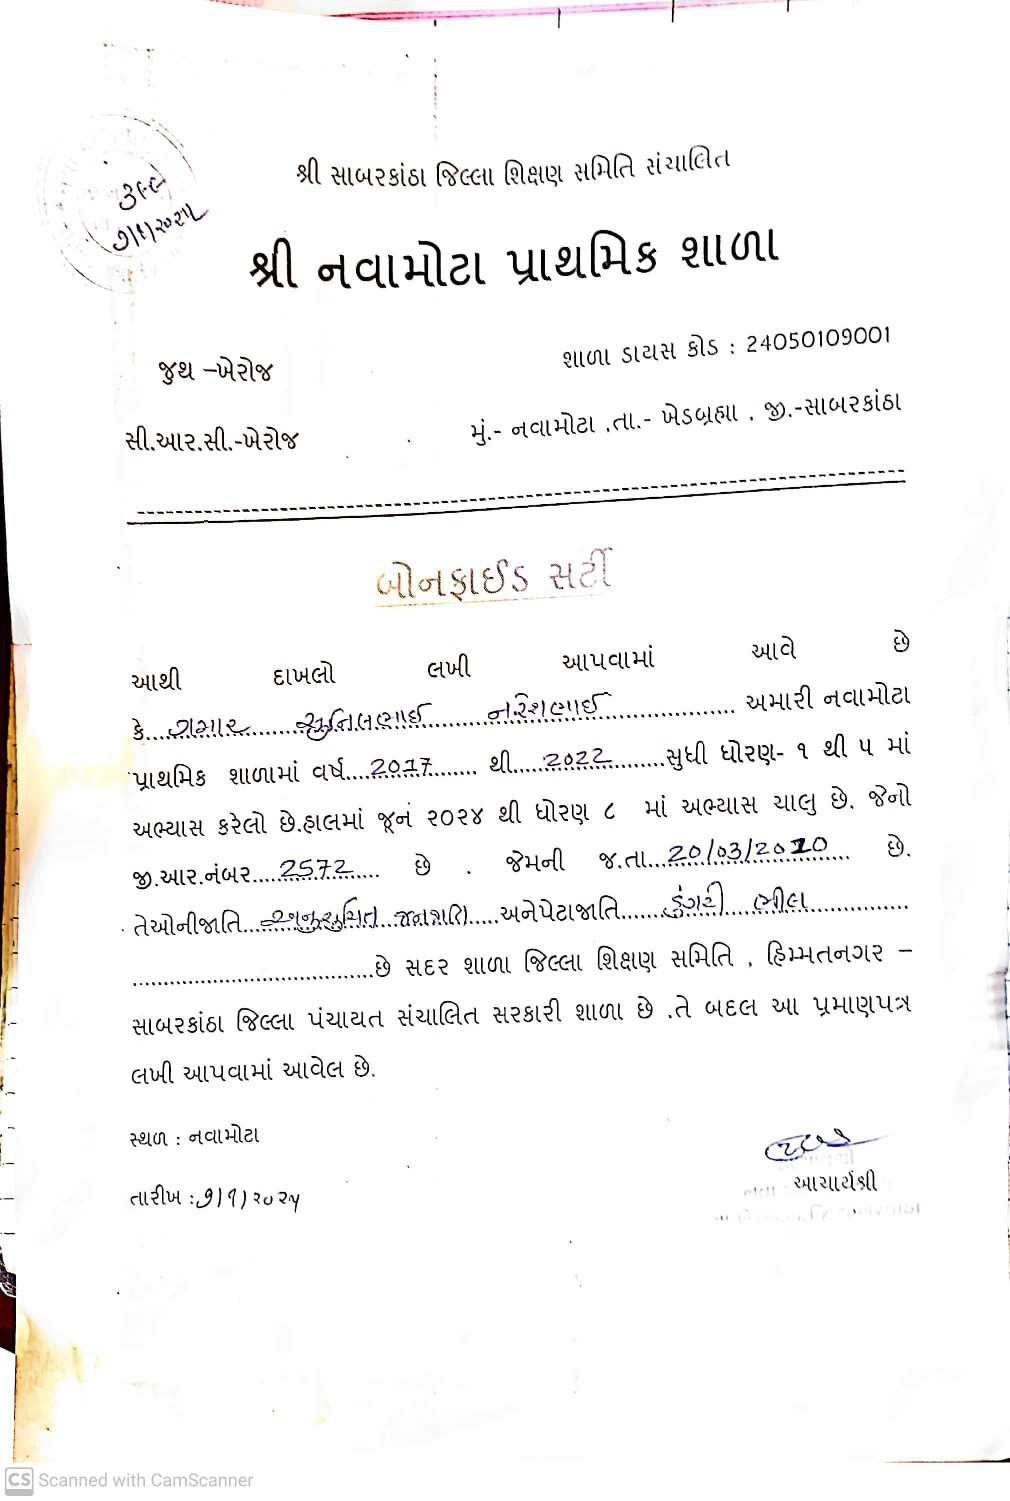 ૩૯૯
૭/૧/૨૦૨૫
શ્રી સાબરકાંઠા જિલ્લા શિક્ષણ સમિતિ સંચાલિત
શ્રી નવામોટા પ્રાથમિક શાળા
જુથ –ખેરોજ
શાળા ડાયસ કોડ : 24050109001
સી.આર.સી.-ખેરોજ
મું.- નવામોટા .તા.- ખેડબ્રહ્મા . જી.-સાબરકાંઠા
બોનફાઈડ સર્ટી
આથી દાખલો લખી આપવામાં આવે છે
કે....ગમાર.......સુનિલભાઈ........નરેશભાઈ................ અમારી નવામોટા
પ્રાથમિક શાળામાં વર્ષ....2017....... થી.....2022........સુધી ધોરણ- ૧ થી ૫ માં
અભ્યાસ કરેલો છે.હાલમાં જૂનં ૨૦૨૪ થી ધોરણ ૮ માં અભ્યાસ ચાલુ છે. જેનો
જી.આર.નંબર....2572.... છે . જેમની જ.તા...20/03/2010... છે.
તેઓનીજાતિ...અનુસુચિત જનજાતિ.....અનેપેટાજાતિ......ડુંગરી ભીલ..............
...................................છે સદર શાળા જિલ્લા શિક્ષણ સમિતિ . હિમ્મતનગર –
સાબરકાંઠા જિલ્લા પંચાયત સંચાલિત સરકારી શાળા છે .તે બદલ આ પ્રમાણપત્ર
લખી આપવામાં આવેલ છે.
સ્થળ : નવામોટા
આચાર્યશ્રી
તારીખ :૭/૧/૨૦૨૫
CS Scanned with CamScanner